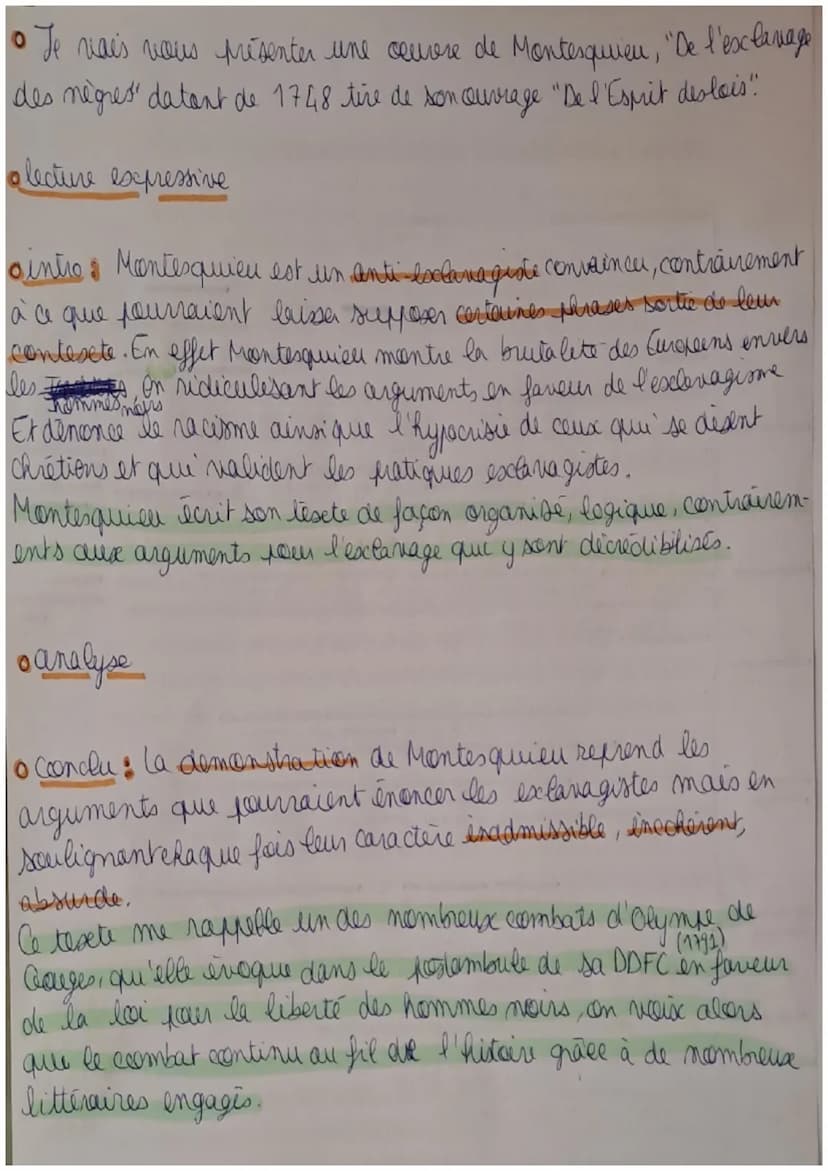 o Je vais vous présenter une œuvre de Montesquieu, "De l'esclavage
des nègres" datant de 1748 tire de son ouvrage "De l'Esprit des lois".
o lecture expressive
o intro : Montesquieu est un anti-esclavagiste convaincu, contrairement
à ce que pourraient laisser supposer certaines phrases sortie de leur
contexte. En effet Montesquieu montre la brutalité des Européens envers
les hommes noirs, en ridiculisant les arguments en faveur de l'esclavagisme
Et dénonce le racisme ainsi que l'hypocrisie de ceux qui se disent
chrétiens et qui valident les pratiques esclavagistes.
Montesquieu écrit son texte de façon organisé, logique, contrairem-
ents aux arguments pour l'esclavage qui y sont décrédibilisés.
o analyse
o conclu : La demonstration de Montesquieu reprend les
arguments que pourraient énoncer les esclavagistes mais en
soulignant chaque fois leur caractère inadmissible, incohérent,
absurde.
Ce texte me rappelle un des nombreux combats d'Olympe de
Gouges, qu'elle évoque dans le postambule de sa DDFC (1791) en faveur
de la loi pour la liberté des hommes noirs, on voix alors
que le combat continu au fil de l'histoire grâce à de nombreux
littéraires engagés.